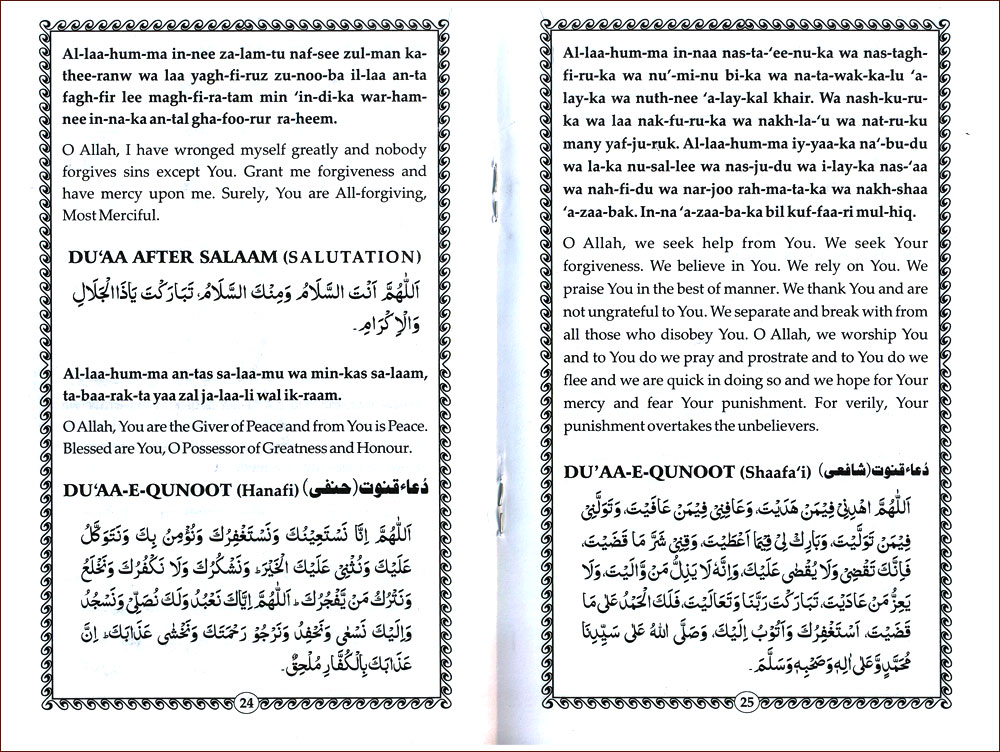 Al-laa-hum-ma in-nee za-lam-tu naf-see zul-man ka-
thee-ranw wa laa yagh-fi-ruz zu-noo-ba il-laa an-ta
fagh-fir lee magh-fi-ra-tam min ‘in-di-ka war-ham-
nee in-na-ka an-tal gha-foo-rur ra-heem.
O Allah, I have wronged myself greatly and nobody
forgives sins except You. Grant me forgiveness and
have mercy upon me. Surely, You are All-forgiving,
Most Merciful.
DU‘AA AFTER SALAAM (SALUTATION)
اَللّٰهُمَّ اَنْتَ السَّلَامُ وَمِنْكَ السَّلَامُ، تَبَارَكْتَ يَاذَا الْجَلَالِ
وَالْاِكْرَامِ۔
Al-laa-hum-ma an-tas sa-laa-mu wa min-kas sa-laam,
ta-baa-rak-ta yaa zal ja-laa-li wal ik-raam.
O Allah, You are the Giver of Peace and from You is Peace.
Blessed are You, O Possessor of Greatness and Honour.
DU‘AA-E-QUNOOT (Hanafi) دُعاء قنوت (حنفی)
اَللّٰهُمَّ اِنَّا نَسْتَعِيْنُكَ وَنَسْتَغْفِرُكَ وَنُؤْمِنُ بِكَ وَنَتَوَكَّلُ
عَلَيْكَ وَنُثْنِيْ عَلَيْكَ الْخَيْرَ ؕ وَنَشْكُرُكَ وَلَا نَكْفُرُكَ وَنَخْلَعُ
وَنَتْرُكُ مَنْ يَّفْجُرُكَ ؕ اَللّٰهُمَّ اِيَّاكَ نَعْبُدُ وَلَكَ نُصَلِّيْ وَنَسْجُدُ
وَاِلَيْكَ نَسْعٰى وَنَحْفِدُ وَنَرْجُوْ رَحْمَتَكَ وَنَخْشٰى عَذَابَكَ ؕ اِنَّ
عَذَابَكَ بِالْكُفَّارِ مُلْحِقٌ۔
24
Al-laa-hum-ma in-naa nas-ta-‘ee-nu-ka wa nas-tagh-
fi-ru-ka wa nu’-mi-nu bi-ka wa na-ta-wak-ka-lu ‘a-
lay-ka wa nuth-nee ‘a-lay-kal khair. Wa nash-ku-ru-
ka wa laa nak-fu-ru-ka wa nakh-la-‘u wa nat-ru-ku
many yaf-ju-ruk. Al-laa-hum-ma iy-yaa-ka na‘-bu-du
wa la-ka nu-sal-lee wa nas-ju-du wa i-lay-ka nas-‘aa
wa nah-fi-du wa nar-joo rah-ma-ta-ka wa nakh-shaa
‘a-zaa-bak. In-na ‘a-zaa-ba-ka bil kuf-faa-ri mul-hiq.
O Allah, we seek help from You. We seek Your
forgiveness. We believe in You. We rely on You. We
praise You in the best of manner. We thank You and are
not ungrateful to You. We separate and break with from
all those who disobey You. O Allah, we worship You
and to You do we pray and prostrate and to You do we
flee and we are quick in doing so and we hope for Your
mercy and fear Your punishment. For verily, Your
punishment overtakes the unbelievers.
DU’AA-E-QUNOOT (Shaafa‘i) دُعاء قنوت (شافعی)
اَللّٰهُمَّ اهْدِنِيْ فِيْمَنْ هَدَيْتَ، وَعَافِنِيْ فِيْمَنْ عَافَيْتَ، وَتَوَلَّنِيْ
فِيْمَنْ تَوَلَّيْتَ، وَبَارِكْ لِيْ فِيْمَا اَعْطَيْتَ، وَقِنِيْ شَرَّ مَا قَضَيْتَ،
فَاِنَّكَ تَقْضِيْ وَلَا يُقْضٰى عَلَيْكَ، وَاِنَّهٗ لَا يَذِلُّ مَنْ وَّالَيْتَ، وَلَا
يَعِزُّ مَنْ عَادَيْتَ، تَبَارَكْتَ رَبَّنَا وَتَعَالَيْتَ، فَلَكَ الْحَمْدُ عَلٰى مَا
قَضَيْتَ، اَسْتَغْفِرُكَ وَاَتُوْبُ اِلَيْكَ، وَصَلَّى اللهُ عَلٰى سَيِّدِنَا
مُحَمَّدٍ وَّعَلٰى اٰلِهٖ وَصَحْبِهٖ وَسَلَّمَ۔
25